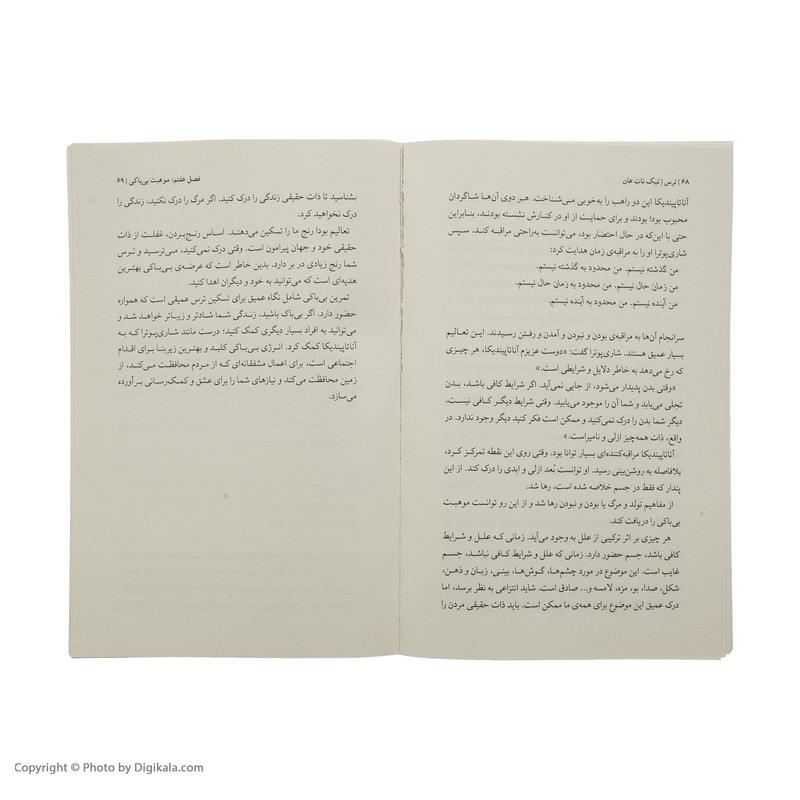 ۶۸ | ترس | تیک نات هان
آناتاپیندیکا این دو راهب را به‌خوبی می‌شناخت. هر دوی آن‌ها شاگردان
محبوب بودا بودند و برای حمایت از او در کنارش نشسته بودند، بنابراین
حتی با این‌که در حال احتضار بود، می‌توانست به‌راحتی مراقبه کند. سپس
شاری‌پوترا او را به مراقبه‌ی زمان هدایت کرد:
من گذشته نیستم. من محدود به گذشته نیستم.
من زمان حال نیستم. من محدود به زمان حال نیستم.
من آینده نیستم. من محدود به آینده نیستم.
سرانجام آن‌ها به مراقبه‌ی بودن و نبودن و آمدن و رفتن رسیدند. این تعالیم
بسیار عمیق هستند. شاری‌پوترا گفت: «دوست عزیزم آناتاپیندیکا، هر چیزی
که رخ می‌دهد به خاطر دلایل و شرایطی است.»
«وقتی بدن پدیدار می‌شود، از جایی نمی‌آید. اگر شرایط کافی باشد، بدن
تجلی می‌یابد و شما آن را موجود می‌یابید. وقتی شرایط دیگر کافی نیست،
دیگر شما بدن را درک نمی‌کنید و ممکن است فکر کنید دیگر وجود ندارد. در
واقع، ذات همه‌چیز ازلی و نامیراست.»
آناتاپیندیکا مراقبه‌کننده‌ای بسیار توانا بود. وقتی روی این نقطه تمرکز کرد،
بلافاصله به روشن‌بینی رسید. او توانست بُعد ازلی و ابدی را درک کند. از این
پندار که فقط در جسم خلاصه شده است، رها شد.
از مفاهیم تولد و مرگ یا بودن و نبودن رها شد و از این رو توانست موهبت
بی‌باکی را دریافت کند.
هر چیزی بر اثر ترکیبی از علل به وجود می‌آید. زمانی که علل و شرایط
کافی باشد، جسم حضور دارد. زمانی که علل و شرایط کافی نباشد، جسم
غایب است. این موضوع در مورد چشم‌ها، گوش‌ها، بینی، زبان و ذهن،
شکل، صدا، بو، مزه، لامسه و... صادق است. شاید انتزاعی به نظر برسد، اما
درک عمیق این موضوع برای همه‌ی ما ممکن است. باید ذات حقیقی مردن را
فصل هفتم: موهبت بی‌باکی | ۶۹
بشناسید تا ذات حقیقی زندگی را درک کنید. اگر مرگ را درک نکنید، زندگی را
درک نخواهید کرد.
تعالیم بودا رنج ما را تسکین می‌دهند. اساس رنج‌بردن، غفلت از ذات
حقیقی خود و جهان پیرامون است. وقتی درک نمی‌کنید، می‌ترسید و ترس
شما رنج زیادی در بر دارد. بدین خاطر است که عرضه‌ی بی‌باکی بهترین
هدیه‌ای است که می‌توانید به خود و دیگران اهدا کنید.
تمرین بی‌باکی شامل نگاه عمیق برای تسکین ترس عمیقی است که همواره
حضور دارد. اگر بی‌باک باشید، زندگی شما شادتر و زیباتر خواهد شد و
می‌توانید به افراد بسیار دیگری کمک کنید؛ درست مانند شاری‌پوترا که به
آناتاپیندیکا کمک کرد. انرژی بی‌باکی کلید و بهترین زیربنا برای اقدام
اجتماعی است، برای اعمال مشفقانه‌ای که از مردم محافظت می‌کند، از
زمین محافظت می‌کند و نیازهای شما را برای عشق و کمک‌رسانی برآورده
می‌سازد.
Copyright © Photo by Digikala.com